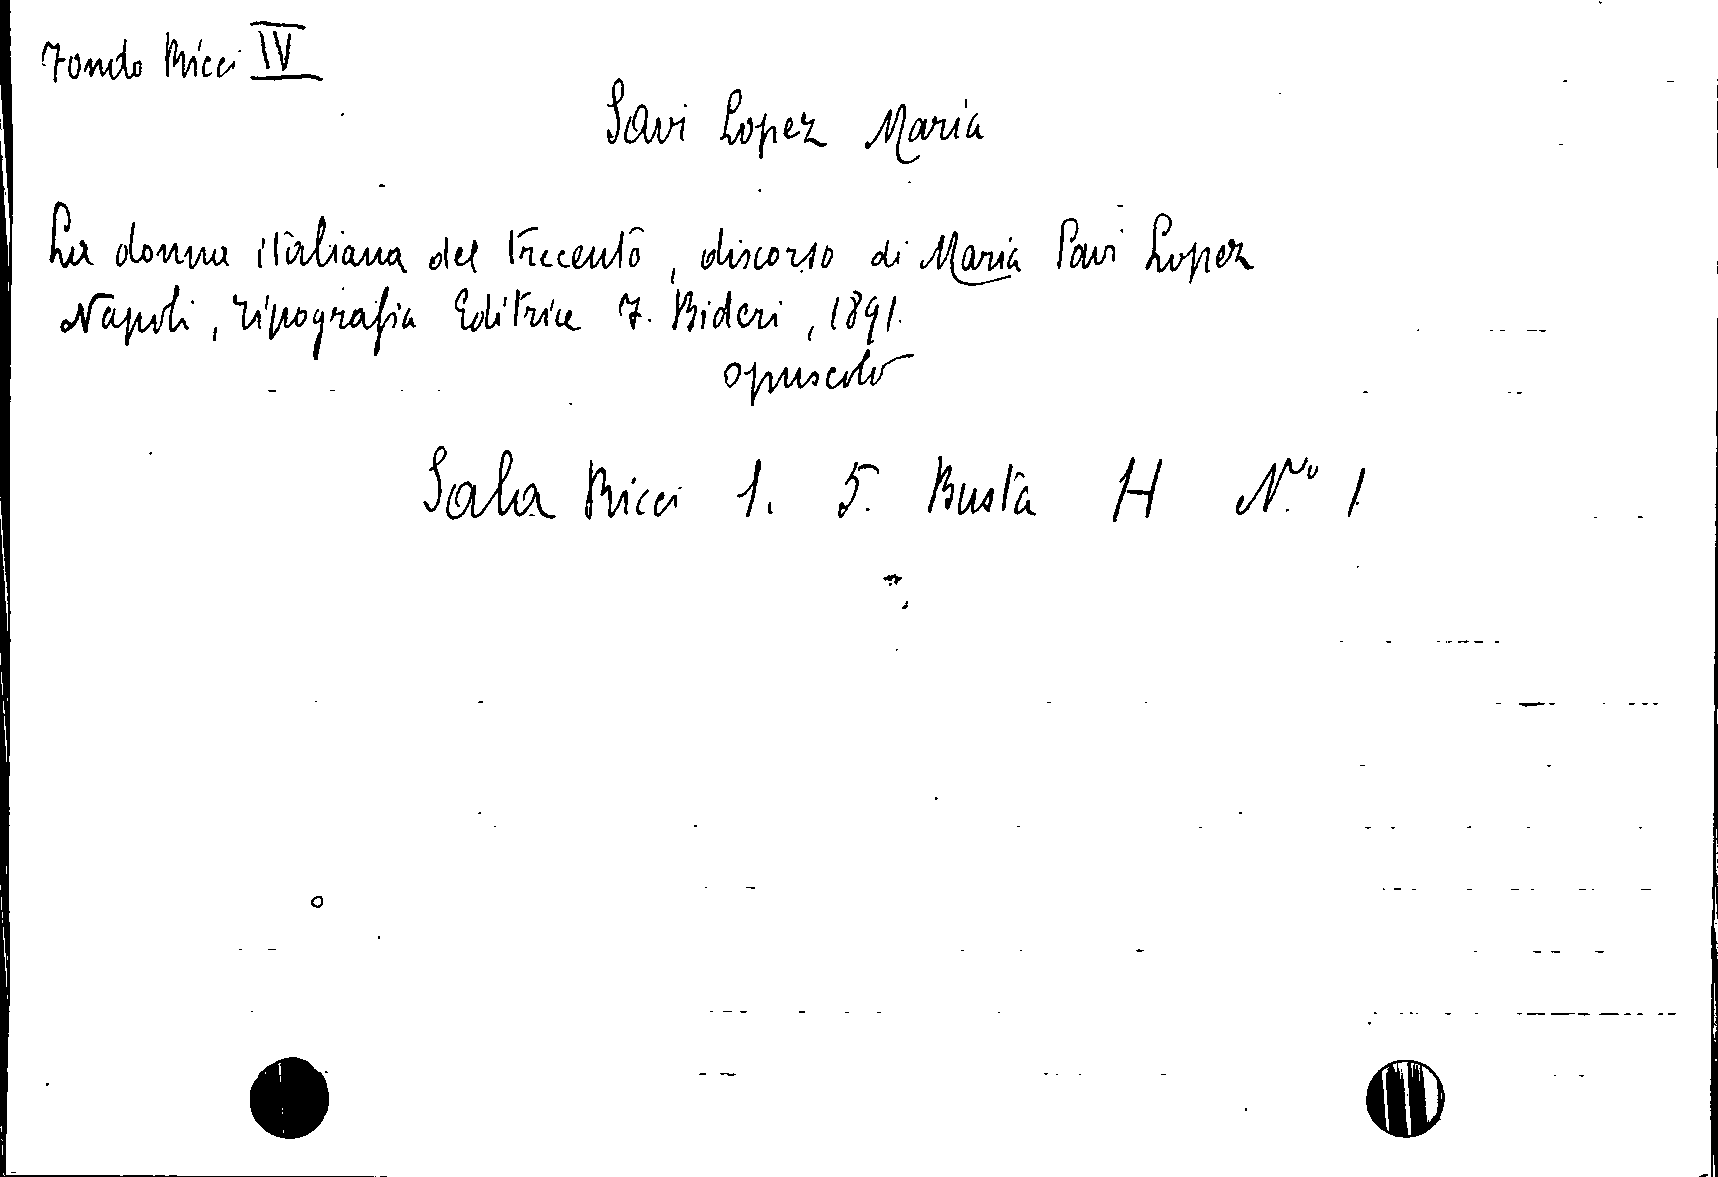 Fondo Ricci IV
Savi Lopez Maria
La donna italiana del trecento, discorso di Maria Savi Lopez
Napoli, Tipografia Editrice F. Bideri, 1891.
opuscolo
Sala Ricci 1. 5. Busta H N.o 1